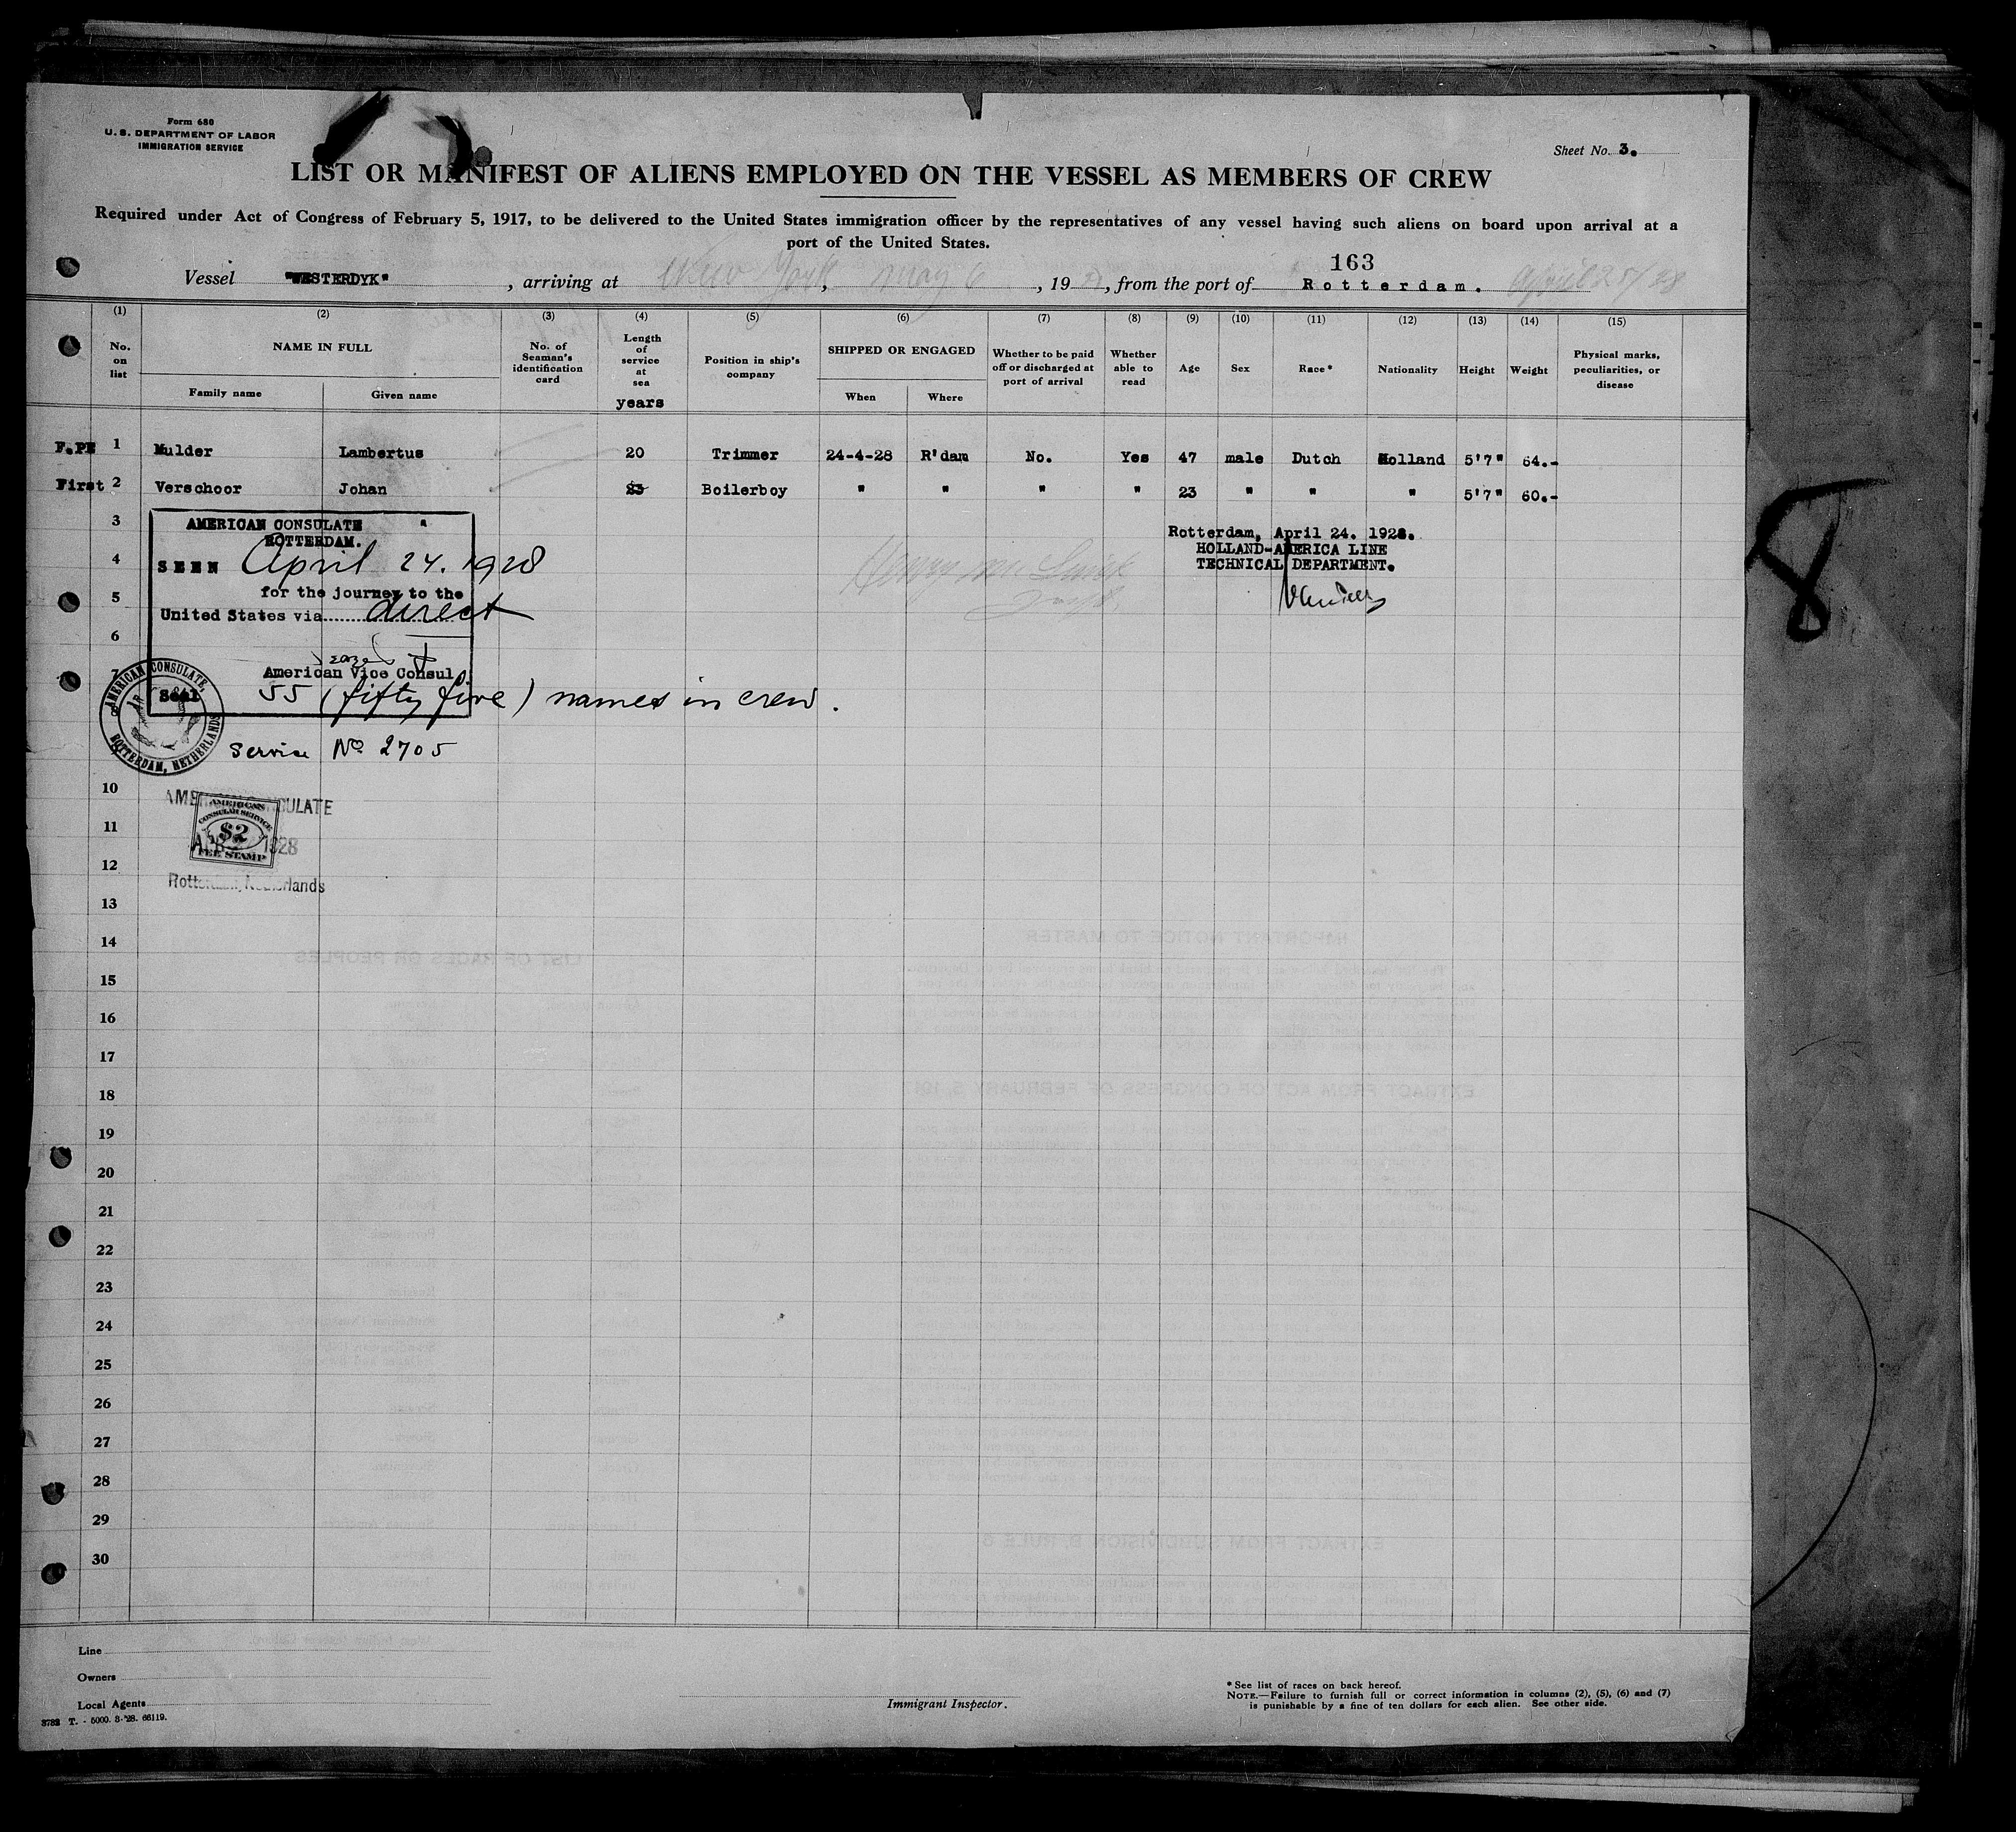 Form 680
U. S. DEPARTMENT OF LABOR
IMMIGRATION SERVICE
Sheet No. 3.
LIST OR MANIFEST OF ALIENS EMPLOYED ON THE VESSEL AS MEMBERS OF CREW
Required under Act of Congress of February 5, 1917, to be delivered to the United States immigration officer by the representatives of any vessel having such aliens on board upon arrival at a
port of the United States.
163
Vessel "WESTERDYK" , arriving at New York , May 6 , 19 , from the port of Rotterdam. April 25/28
(1) (2) (3) (4) (5) (6) (7) (8) (9) (10) (11) (12) (13) (14) (15)
No. on list
NAME IN FULL
Family name
Given name
No. of Seaman's identification card
Length of service at sea
years
Position in ship's company
SHIPPED OR ENGAGED
When
Where
Whether to be paid off or discharged at port of arrival
Whether able to read
Age
Sex
Race*
Nationality
Height
Weight
Physical marks, peculiarities, or disease
F.PE 1 Mulder Lambertus 20 Trimmer 24-4-28 R'dam No. Yes 47 male Dutch Holland 5'7" 64.-
First 2 Verschoor Johan Boilerboy " " " " 23 " " " 5'7" 60.-
3
4
5
6
7
10
11
12
13
14
15
16
17
18
19
20
21
22
23
24
25
26
27
28
29
30
AMERICAN CONSULATE
ROTTERDAM.
SEEN April 24. 1928
for the journey to the
United States via direct
American Vice Consul.
Seal
AMERICAN CONSULATE,
ROTTERDAM, NETHERLANDS
55 (fifty five) names in crew.
Service No 2705
AMERICAN CONSULATE
AMERICAN
CONSULAR SERVICE
$2
FEE STAMP
APR 1928
Rotterdam, Netherlands
Rotterdam, April 24. 1928.
HOLLAND-AMERICA LINE
TECHNICAL DEPARTMENT.
8
Line
Owners
Local Agents
3782 T. - 5000. 3-'28. 66119.
Immigrant Inspector.
* See list of races on back hereof.
NOTE.—Failure to furnish full or correct information in columns (2), (5), (6) and (7)
is punishable by a fine of ten dollars for each alien. See other side.